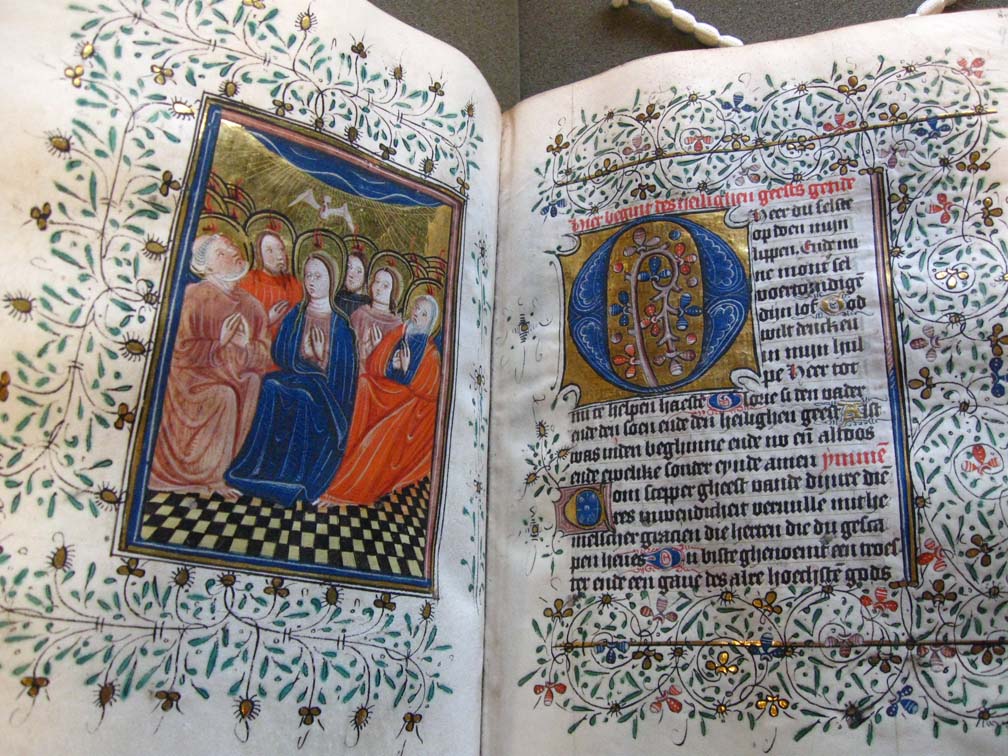 Hier begint des heilighen geests getide
Heer du selste
op doen mijn
lippen. Ende mi
ne mont sel
dijn lof God
wilt dencken
in mijn hul
pe Heer tot
mi te helpen haeste Glorie si den vader
ende den soen ende den heilighen geest Alst
was inden beghinne ende nv en̄ altoos
ende ewelike sonder eynde amen ymnē
Com scepper gheest vande dijnre diē
res inwendicheit vervulle mit he
melscher gracien die herten die du gesca
pen heues Du biste ghenoemt een troes
ter ende een gaue des alre hoechste gods